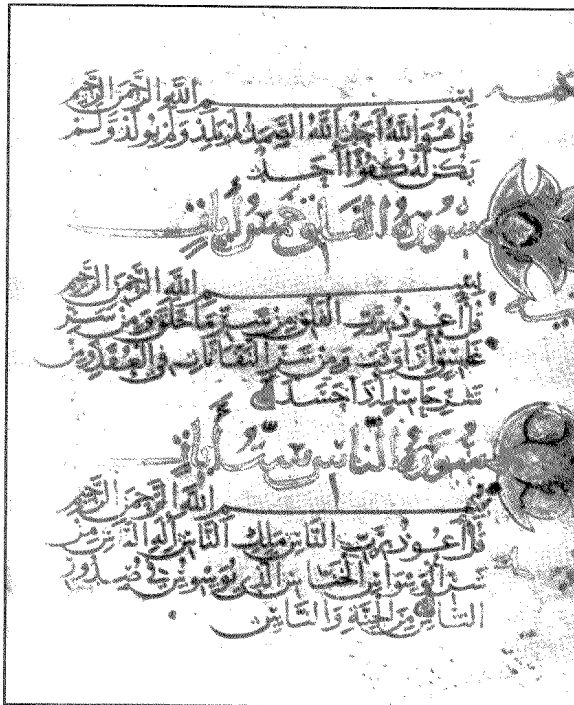 بسم الله الرحمن الرحيم
قل هو الله احد الله الصمد لم يلد ولم يولد ولم
يكن له كفوا احد
سورة الفلق خمس آيات
بسم الله الرحمن الرحيم
قل أعوذ برب الفلق من شر ما خلق ومن شر
غاسق إذا وقب ومن شر النفاثات في العقد ومن
شر حاسد إذا حسد
سورة الناس ست آيات
بسم الله الرحمن الرحيم
قل أعوذ برب الناس ملك الناس إله الناس من
شر الوسواس الخناس الذي يوسوس في صدور
الناس من الجنة والناس